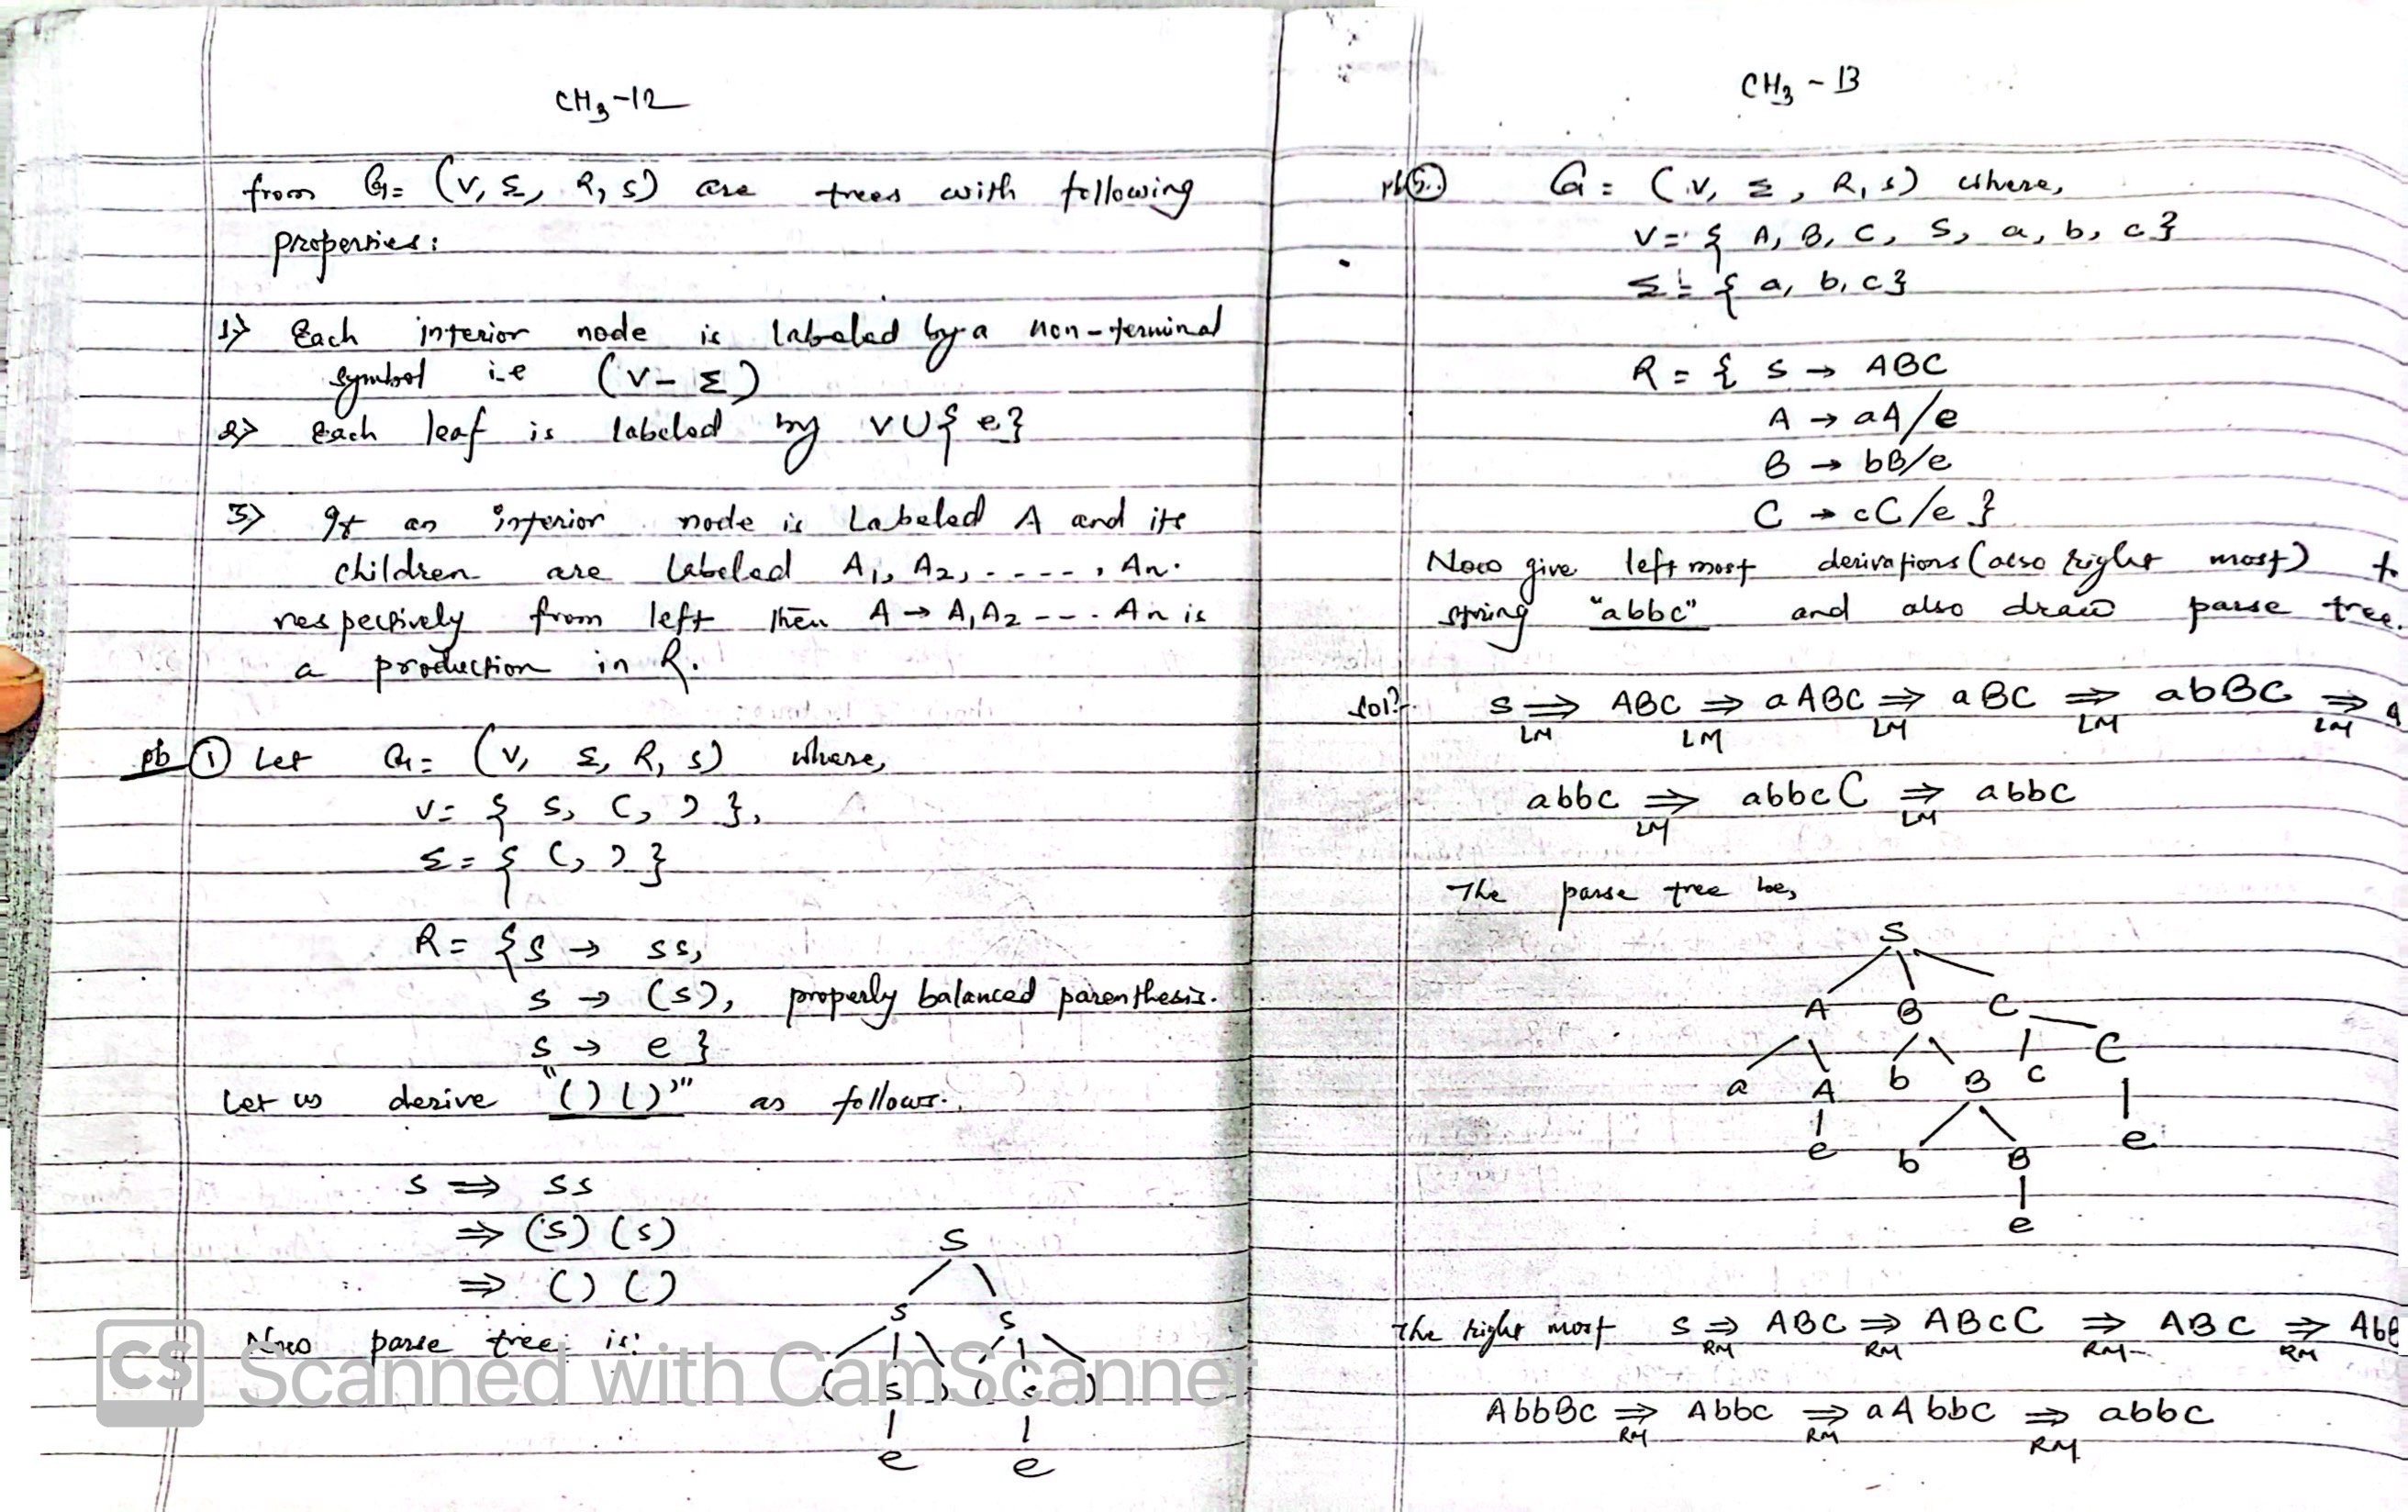 CH3-12
from G = (V, Σ, R, S) are trees with following
properties:
1> Each interior node is labeled by a non-terminal
symbol i.e (V - Σ)
2> Each leaf is labeled by V U { e }
3> If an interior node is Labeled A and its
children are labeled A1, A2, - - - - , An.
respectively from left then A → A1 A2 - - - . An is
a production in R.
pb ① Let G = (V, Σ, R, S) where,
V = { S, (, ) },
Σ = { (, ) }
R = { S → SS,
S → (S), properly balanced parenthesis.
S → e }
Let us derive "( ) ( )" as follows.
S ⇒ SS
⇒ (S) (S)
⇒ ( ) ( )
Now parse tree is:
S
S S
( S ) ( S )
e e
CS Scanned with CamScanner
CH3 - 13
G = (V, Σ, R, S) where,
V = { A, B, C, S, a, b, c }
Σ = { a, b, c }
R = { S → ABC
A → aA/e
B → bB/e
C → cC/e }
Now give left most derivations (also right most) to
string "abbc" and also draw parse tree.
Sol? S ⇒ ABC ⇒ aABC ⇒ aBC ⇒ abBC ⇒
LM LM LM LM LM
abbC ⇒ abbcC ⇒ abbc
LM LM
The parse tree be,
S
A B C
a A b B c C
e b B e
e
The right most S ⇒ ABC ⇒ ABcC ⇒ ABc ⇒
RM RM RM RM
AbbBc ⇒ Abbc ⇒ aAbbc ⇒ abbc
RM RM RM